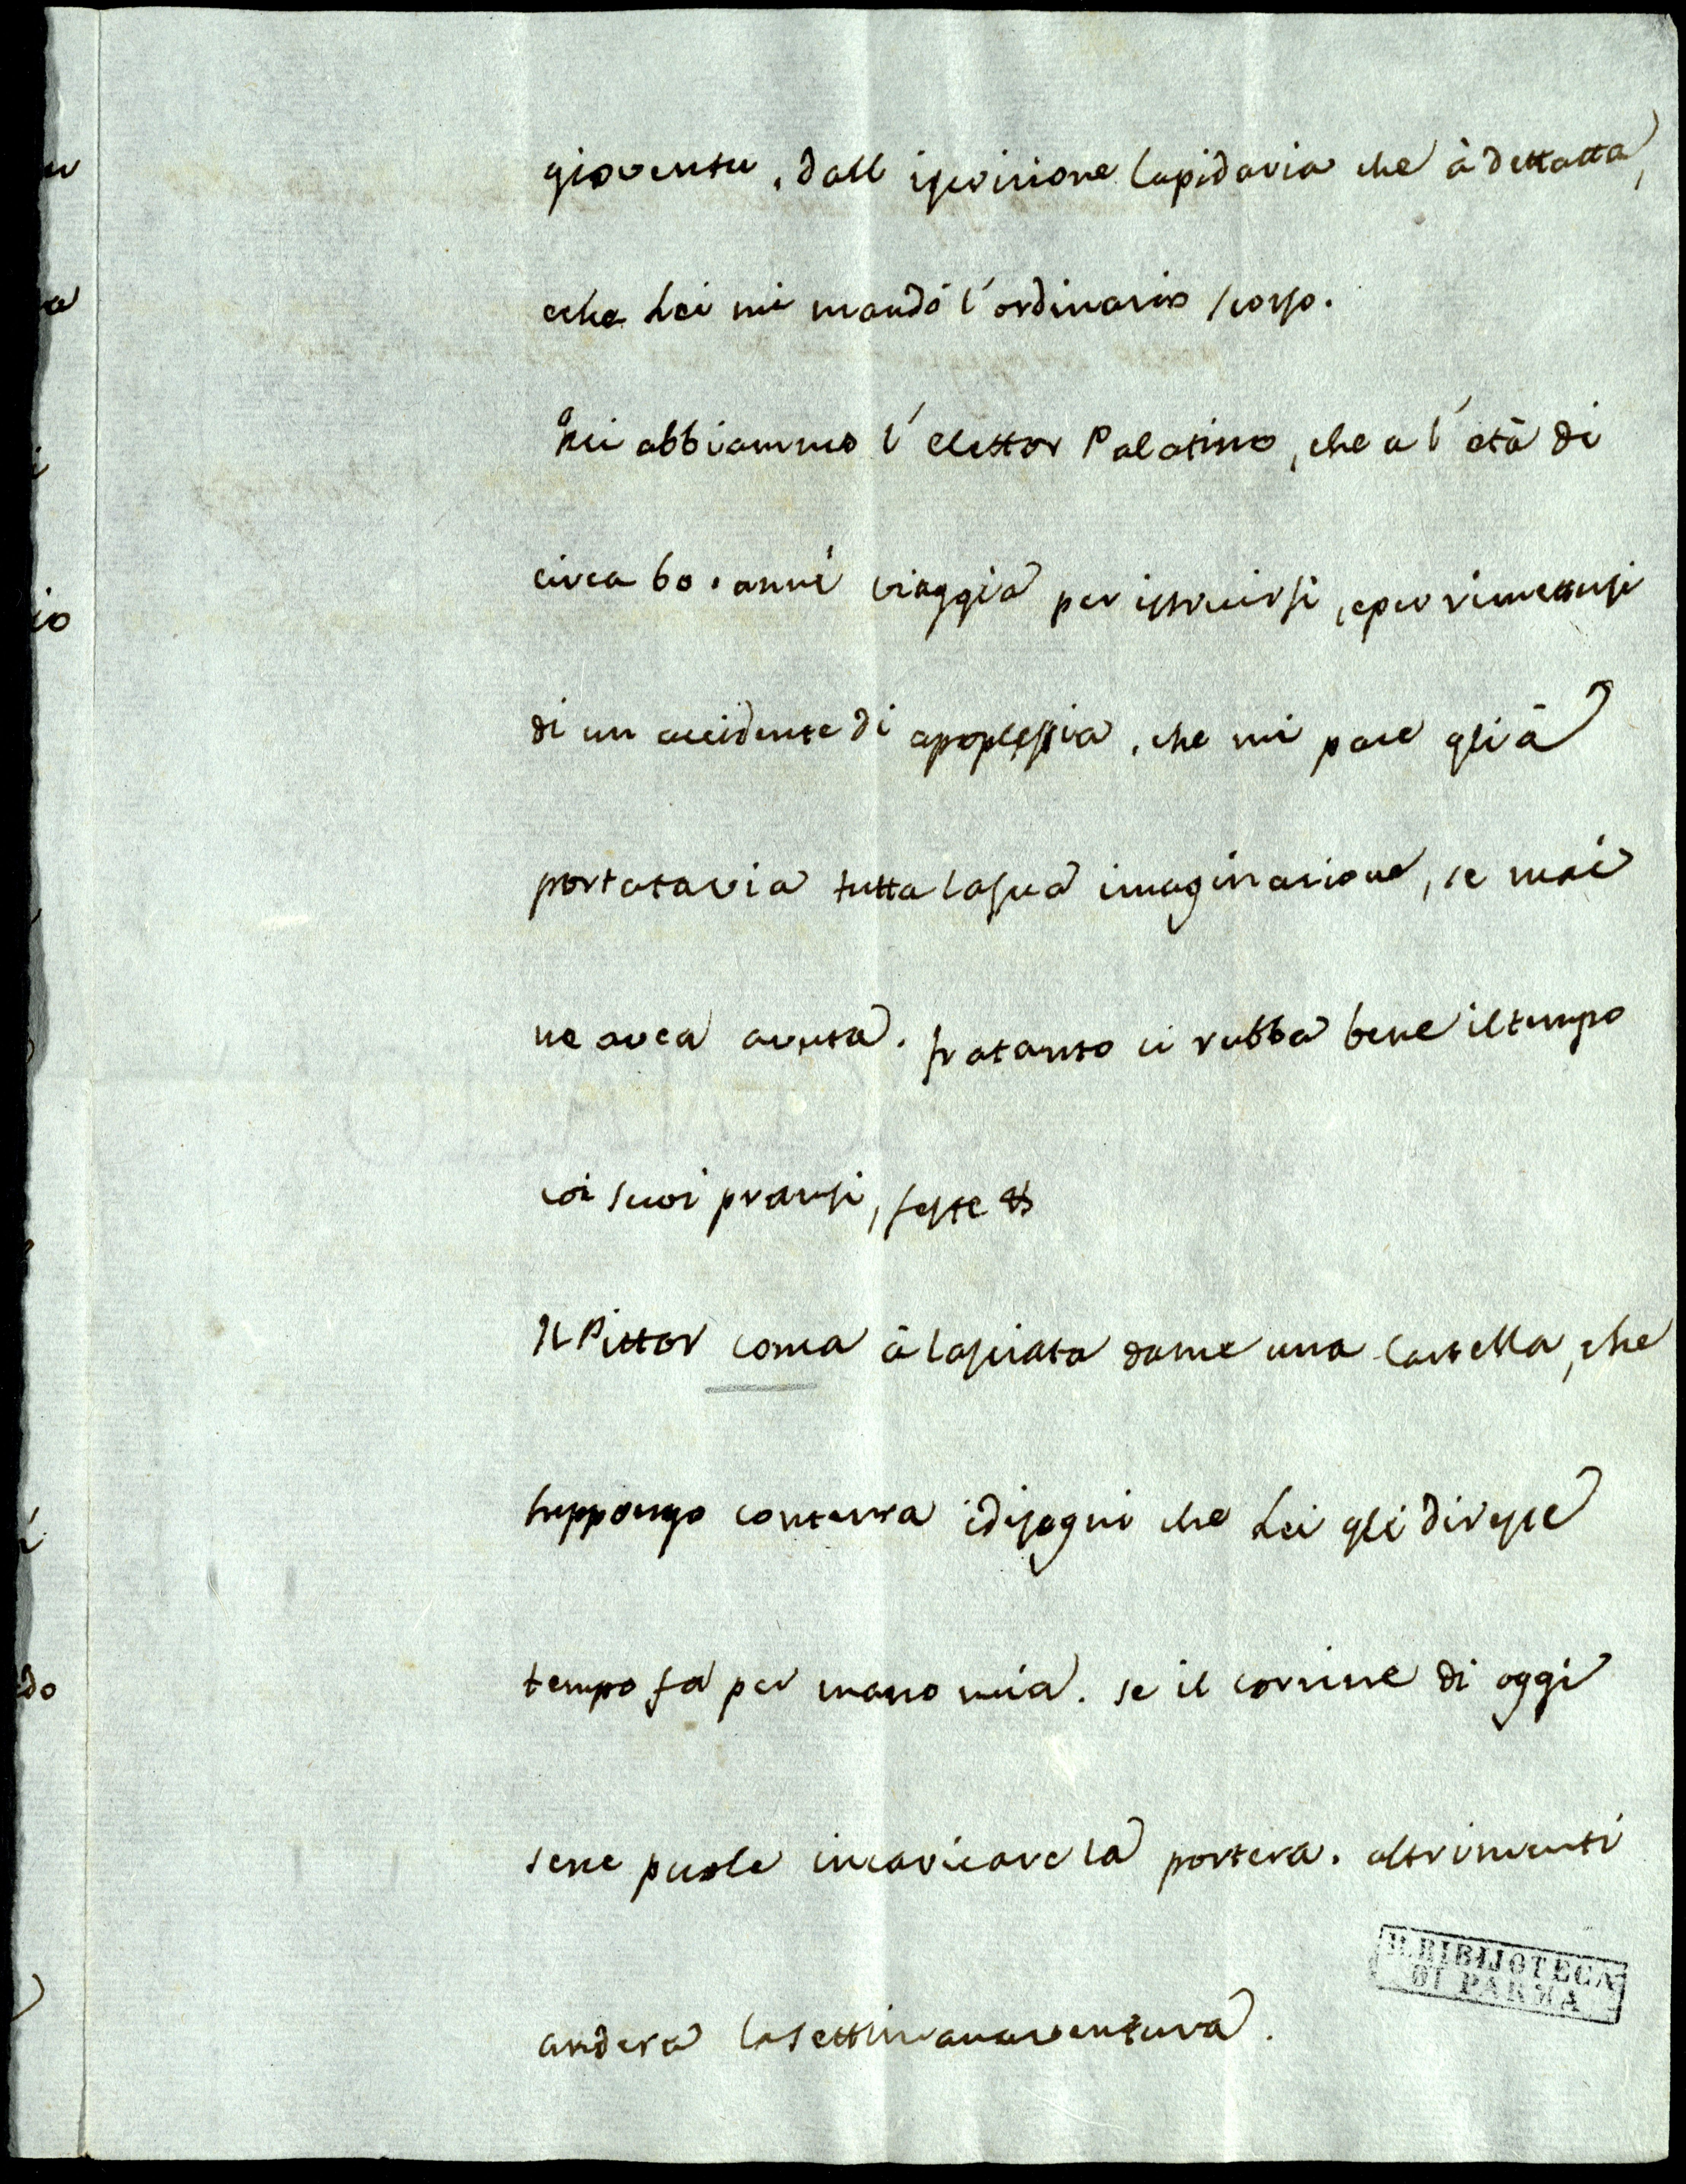 gioventu, dall iscrizione lapidaria che à dettatta,
eche Lei mi mandó l'ordinario scorso.
Qui abbiammo l'Elettor Palatino, che a l'età di
circa 60. anni viaggia per istruirsi, eper rimettersi
di un accidente di apoplessia, che mi pare gli à
portatavia tutta lasua imaginazione, se mai
ne avea avuta. fratanto ci rubba bene iltempo
coi suoi pransi, feste &
Il Pittor Conca à lasciata dame una Cartella, che
suppongo contenra idisegni che Lei gli diresse
tempo fa per mano mia. se il corriere di oggi
sene puole incaricare la portera. altrimenti
andera lasettimanaventura.
R. BIBLIOTECA
DI PARMA